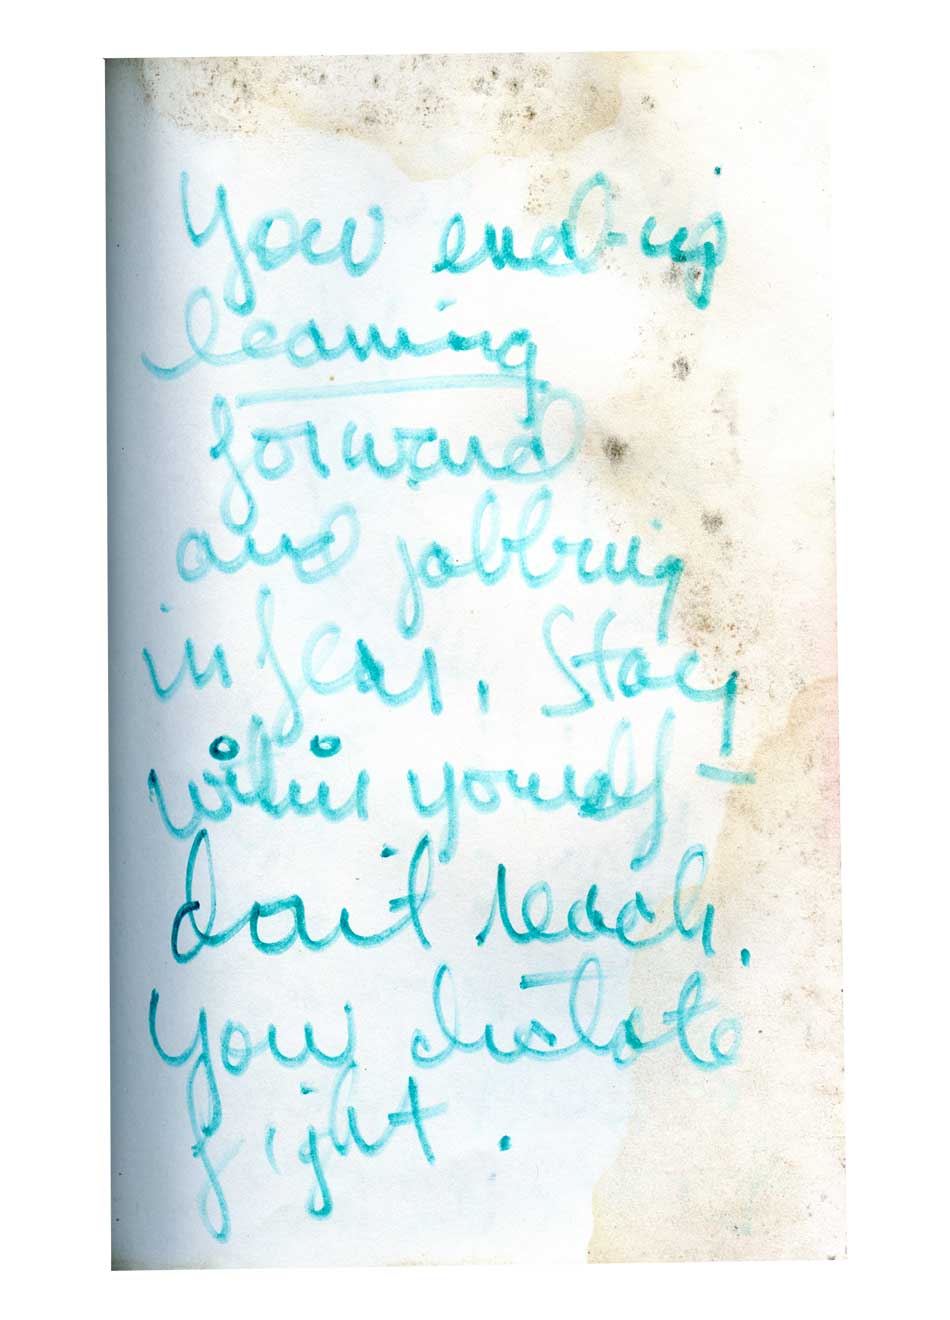 You end-up
leaning
forward
and jabbing
in fear. Stay
within yourself –
don't reach.
You dictate
fight.